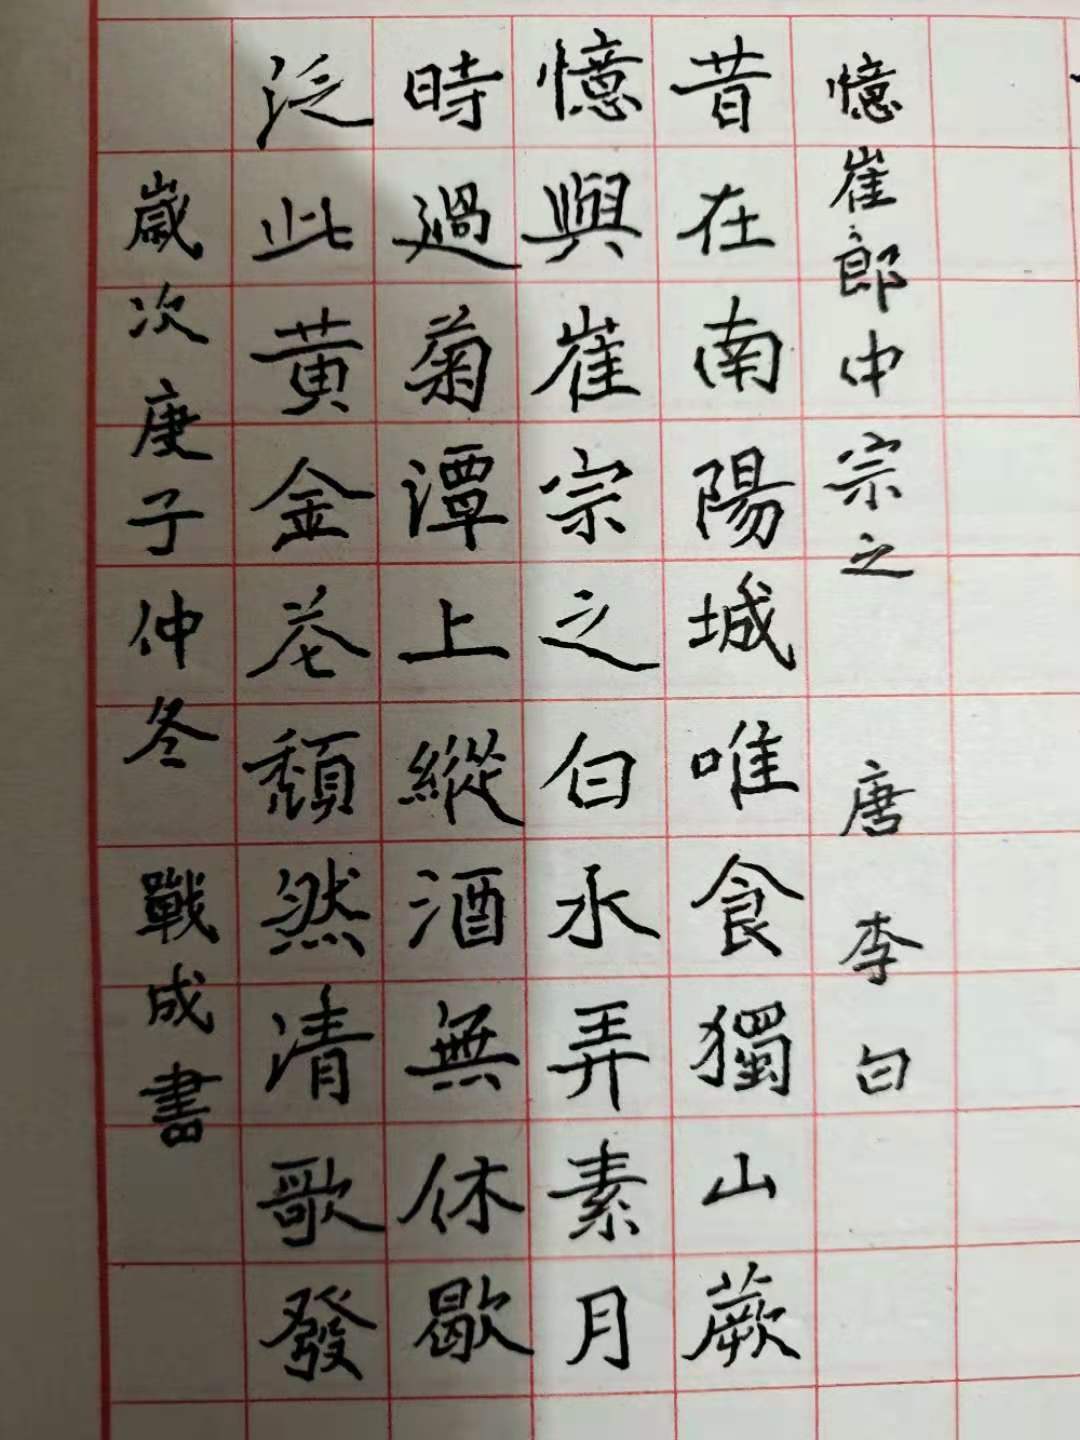 憶崔郎中宗之 唐 李白
昔在南陽城唯食獨山蕨
憶與崔宗之白水弄素月
時過菊潭上縱酒無休歇
泛此黃金花頹然清歌發
歲次庚子仲冬 戰成書